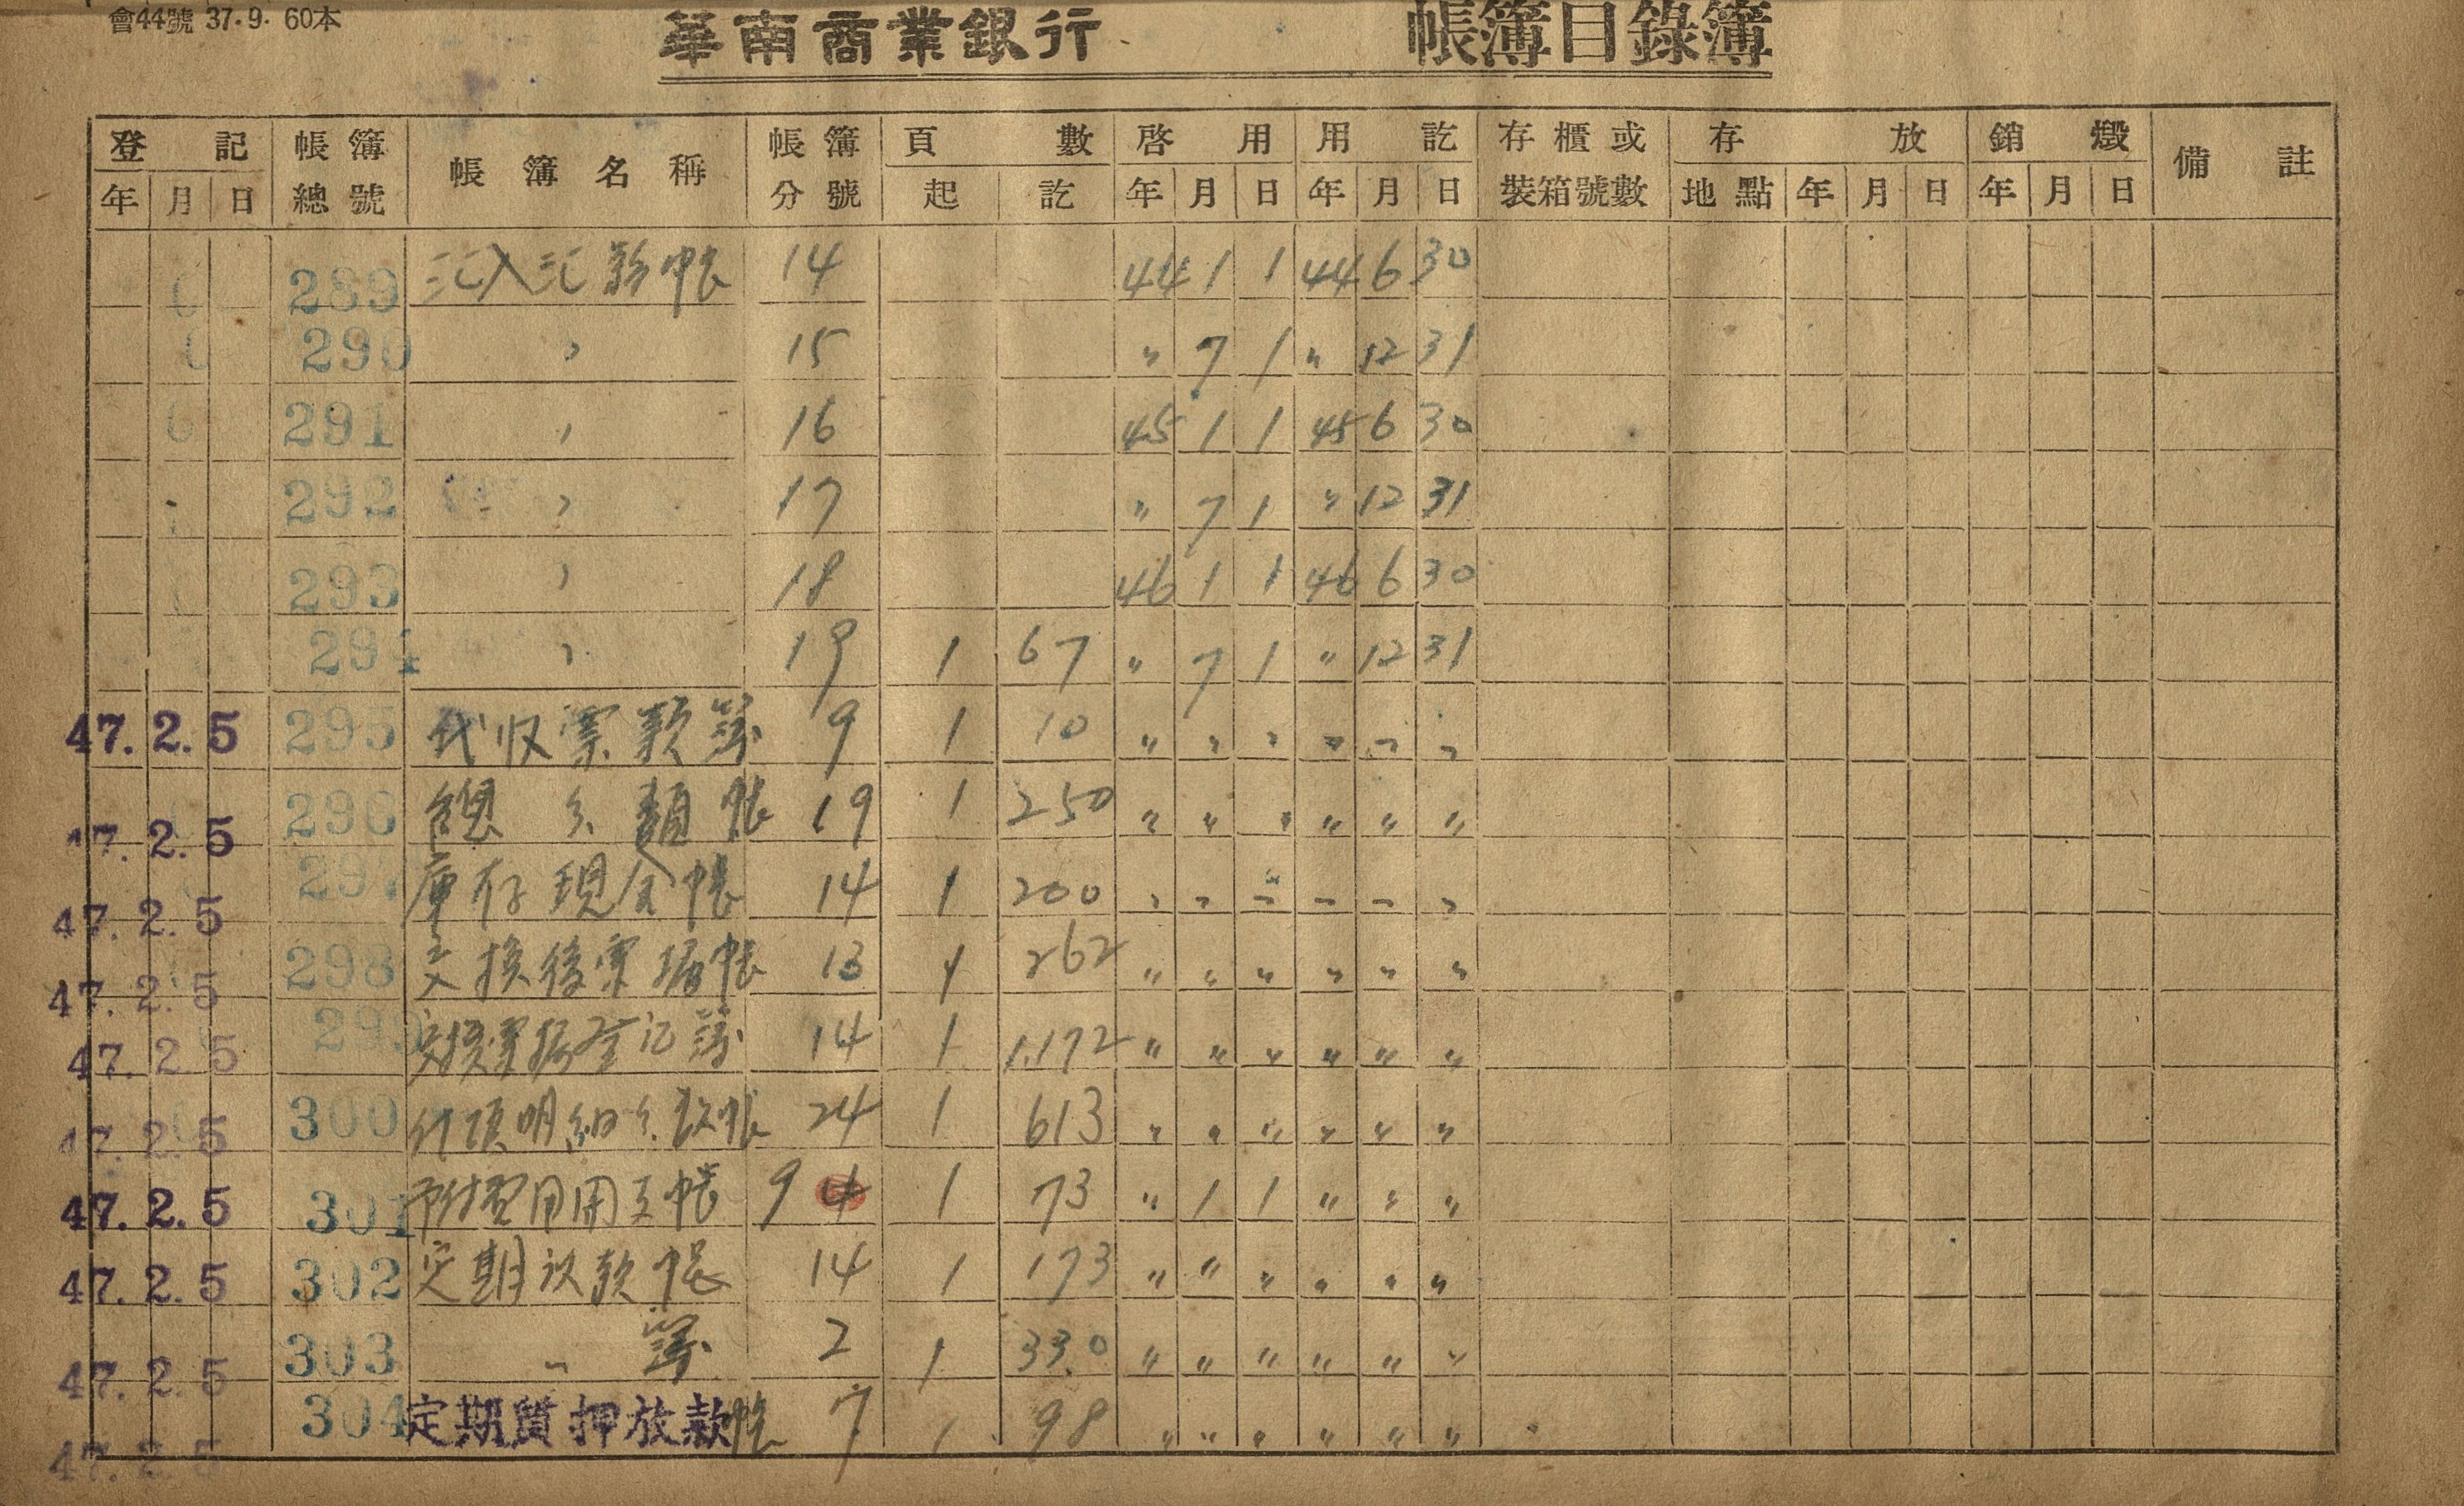 會44號 37.9. 60本
華南商業銀行 帳簿目錄簿
登記 帳簿 帳簿名稱 帳簿 頁數 啓用 用訖 存櫃或 存放 銷燬 備註
年 月 日 總號 分號 起 訖 年 月 日 年 月 日 裝箱號數 地點 年 月 日 年 月 日
289 汇入汇款帐 14 44 1 1 44 6 30
290 〃 15 〃 7 1 〃 12 31
291 〃 16 45 1 1 45 6 30
292 〃 17 〃 7 1 〃 12 31
293 〃 18 46 1 1 46 6 30
294 〃 19 1 67 〃 7 1 〃 12 31
47. 2. 5 295 代收票款簿 9 1 10 〃 〃 〃 〃 〃 〃
47. 2. 5 296 總分類帳 19 1 250 〃 〃 〃 〃 〃 〃
47. 2. 5 297 庫存現金帳 14 1 200 〃 〃 〃 〃 〃 〃
47. 2. 5 298 交換後票据帳 13 1 262 〃 〃 〃 〃 〃 〃
47. 2. 5 299 交換票据登记簿 14 1 1.172 〃 〃 〃 〃 〃 〃
47. 2. 5 300 什項明細分户帳 24 1 613 〃 〃 〃 〃 〃 〃
47. 2. 5 301 費用開支帳 9 4 1 73 〃 1 1 〃 〃 〃
47. 2. 5 302 定期放款帳 14 1 173 〃 〃 〃 〃 〃 〃
47. 2. 5 303 〃 簿 2 1 33.0 〃 〃 〃 〃 〃 〃
47. 2. 5 304 定期質押放款帳 7 1 98 〃 〃 〃 〃 〃 〃